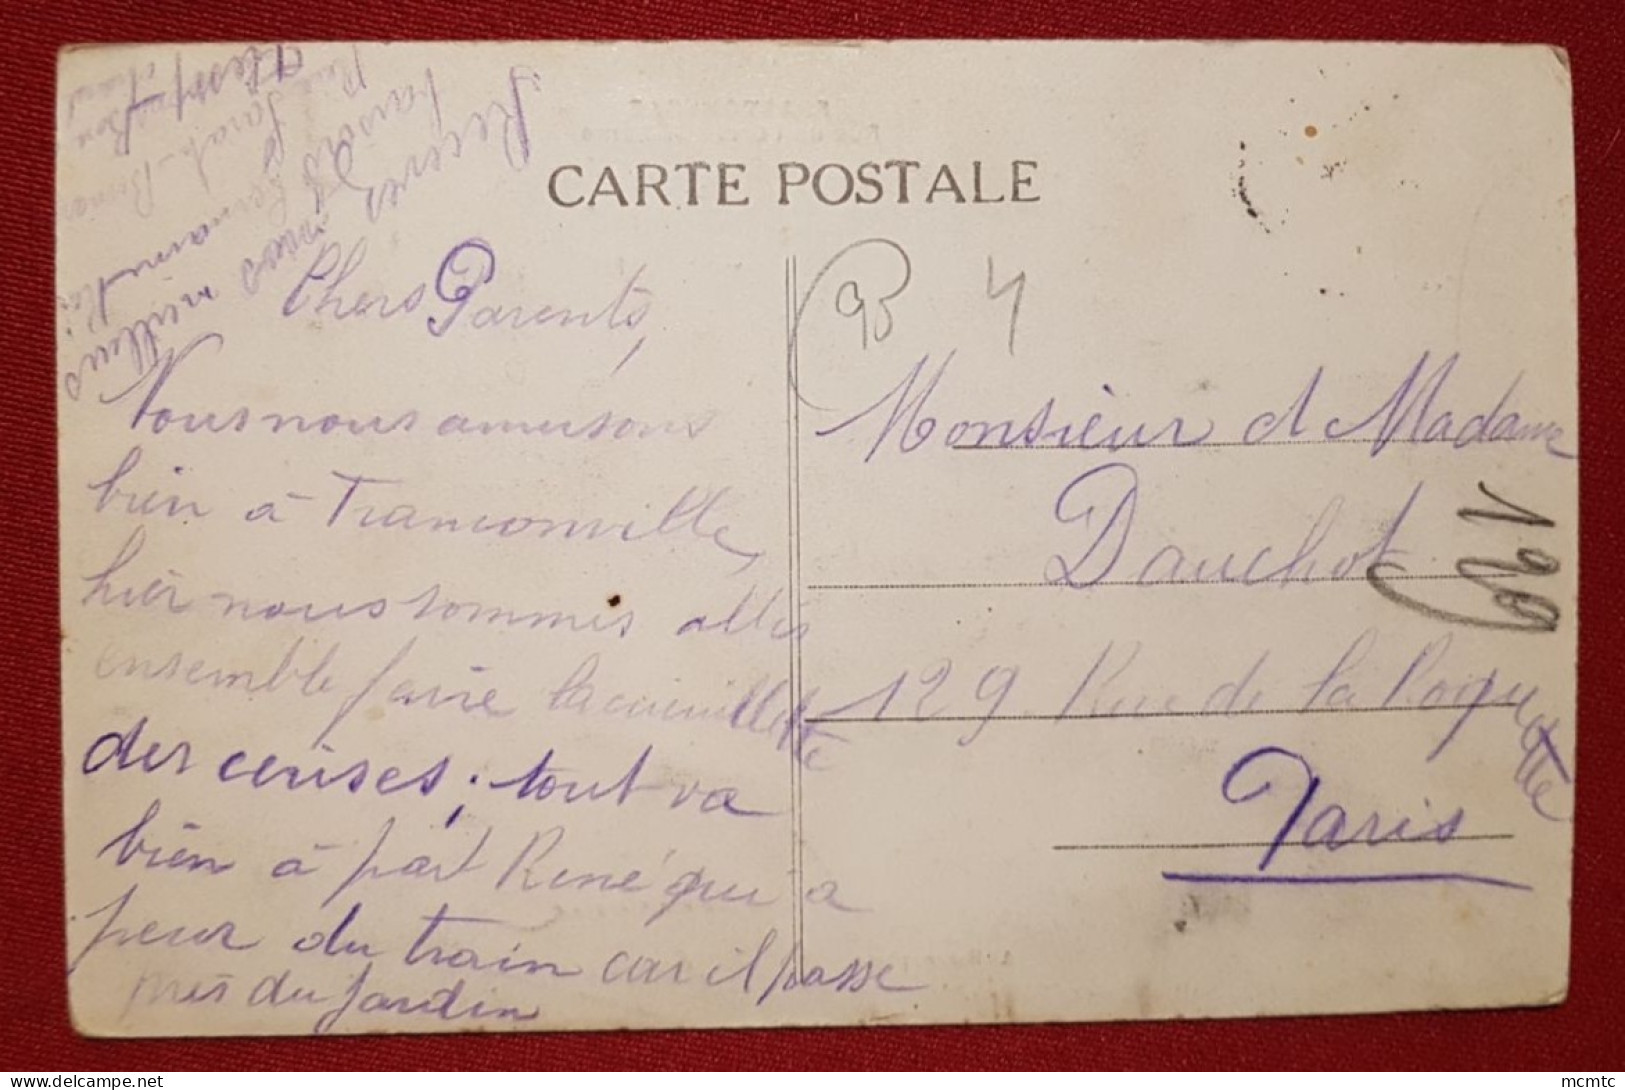 CARTE POSTALE
Chers Parents,
Nous nous amusons
bien à Franconville,
hier nous sommes allés
ensemble faire la cueillette
des cerises; tout va
bien à part René qui a
peur du train car il passe
près du jardin
Recevez
nos meilleurs
Rue Sarah-
95 4
Monsieur et Madame
Dauchot
129 Rue de la Roquette
Paris
129
mcmtc